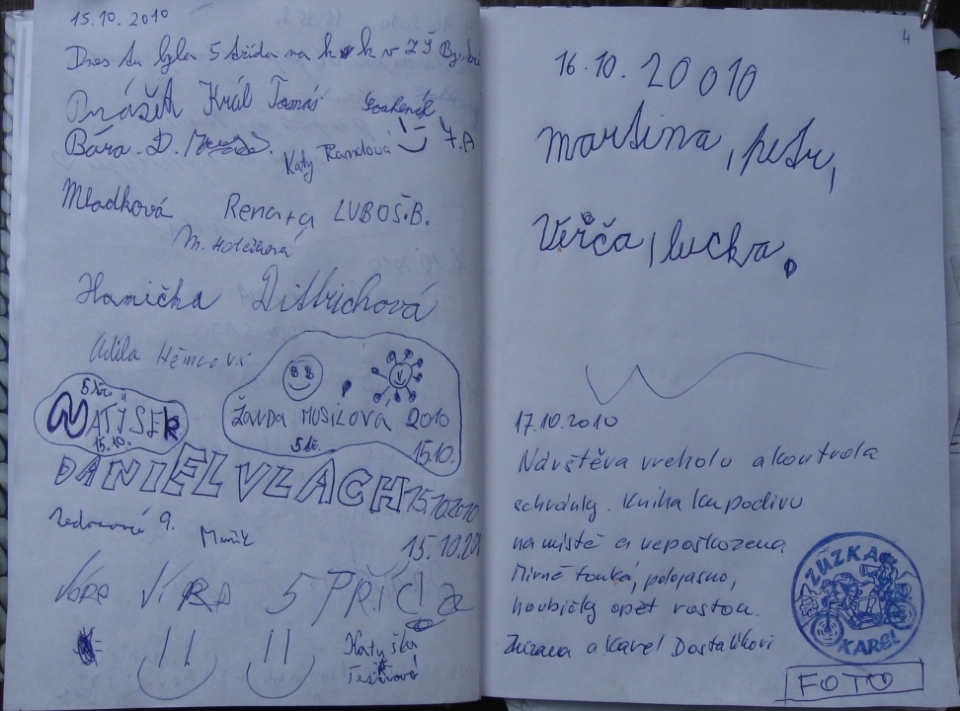 15.10.2010
Dnes tu byla 5 třída na k v ZŠ
Král Tomáš
Bára. D.
Katy Randová 7.A
Mladková Renata LUBOŠ.B.
M. Holčíková
Hanička Dittrichová
Adéla Němcová
5 tř.
MATÝSEK
15.10.
ŽANDA MUSILOVÁ 2010
5 tř. 15.10.
DANIEL VLACH 15.10.2010
9.
15.10.201
VĚRA 5
Katyška
4
16.10.20010
martina, petr,
Verča, lucka.
17.10.2010
Návštěva vrcholu a kontrola
schránky. Kniha kupodivu
na místě a nepoškozena
Mírně fouká, polojasno,
houbičky opět rostou.
Zuzana a Karel Dostalíkovi
ZUZKA
KAREL
FOTO